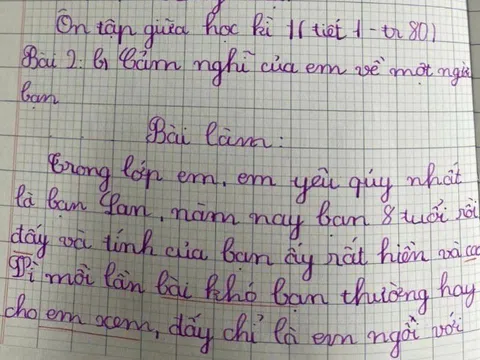 Ôn tập giữa học kì 1 ( tiết 1 - tr 80)
Bài 2: b Cảm nghĩ của em về một người
bạn
Bài làm:
Trong lớp em, em yêu qúy nhất
là bạn Lan, năm nay bạn 8 tuổi rồi
đấy và tính của bạn ấy rất hiền và
Vì mỗi lần bài khó bạn thường hay
cho em xem, đấy chỉ là em ngồi với